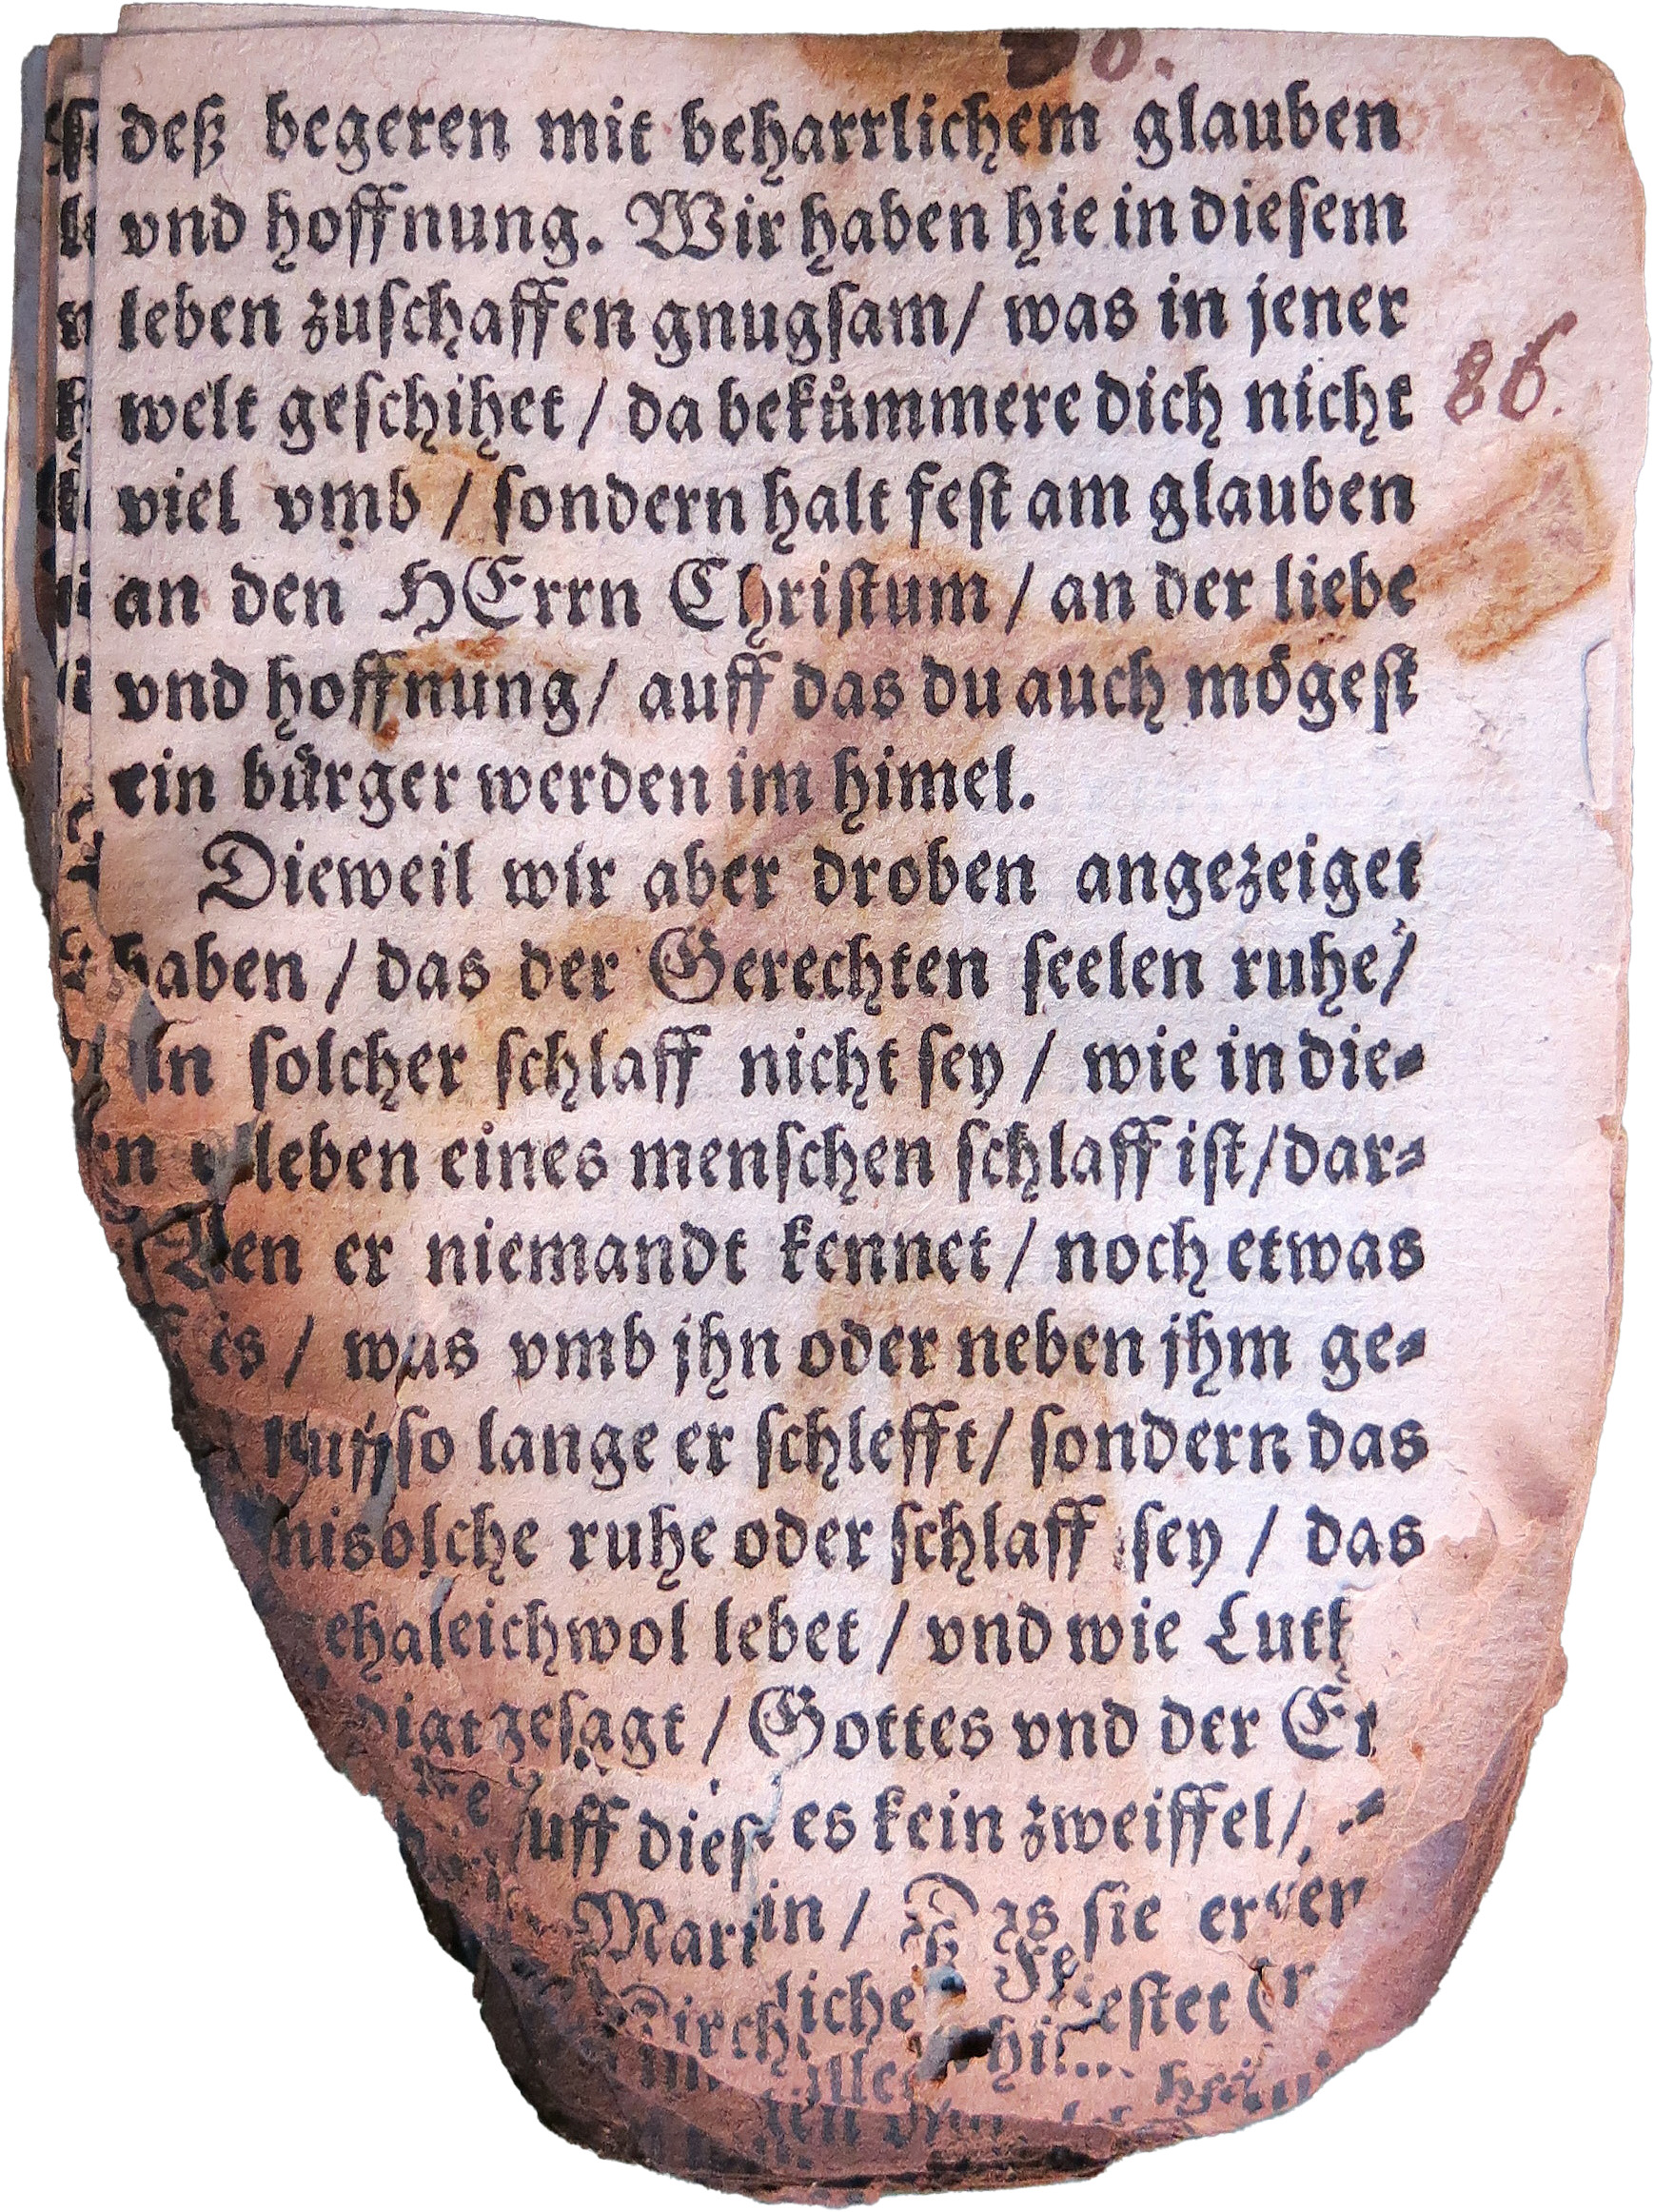 86.
deß begeren mit beharrlichem glauben
vnd hoffnung. Wir haben hie in diesem
leben zuschaffen gnugsam/ was in jener
welt geschihet / da bekůmmere dich nicht
viel vmb / sondern halt fest am glauben
an den HErrn Christum / an der liebe
vnd hoffnung/ auff das du auch mögest
ein bürger werden im himel.
Dieweil wir aber droben angezeiget
haben / das der Gerechten seelen ruhe/
solcher schlaff nicht sey / wie in die-
leben eines menschen schlaff ist/dar-
er niemandt kennet / noch etwas
/ was vmb jhn oder neben jhm ge-
so lange er schlefft/ sondern das
solche ruhe oder schlaff sey / das
lebet / vnd wie
gesagt / Gottes vnd der
es kein zweiffel/
/ Das sie